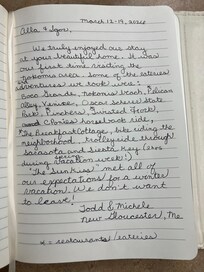 March 12-19, 2024
Alla & Igor,
We truly enjoyed our stay
at your beautiful home. It was
our first time visiting the
Nokomis area. Some of the eateries/
adventures we took were:
Boca Grande, Nokomis Beach, Pelican
Alley, Venice, Oscar Scherer State
Park, Pinchers, Sunset
horseback ride,
The Breakfast Cottage, bike riding the
neighborhood, trolleyride through
Sarasota and Siesta Key (
during spring vacation week!)
"The Sunkiss" met all of
our expectations for a winter
vacation. We don't want
to leave!
Todd & Michele
New Gloucester, Me
* = restaurants/eateries